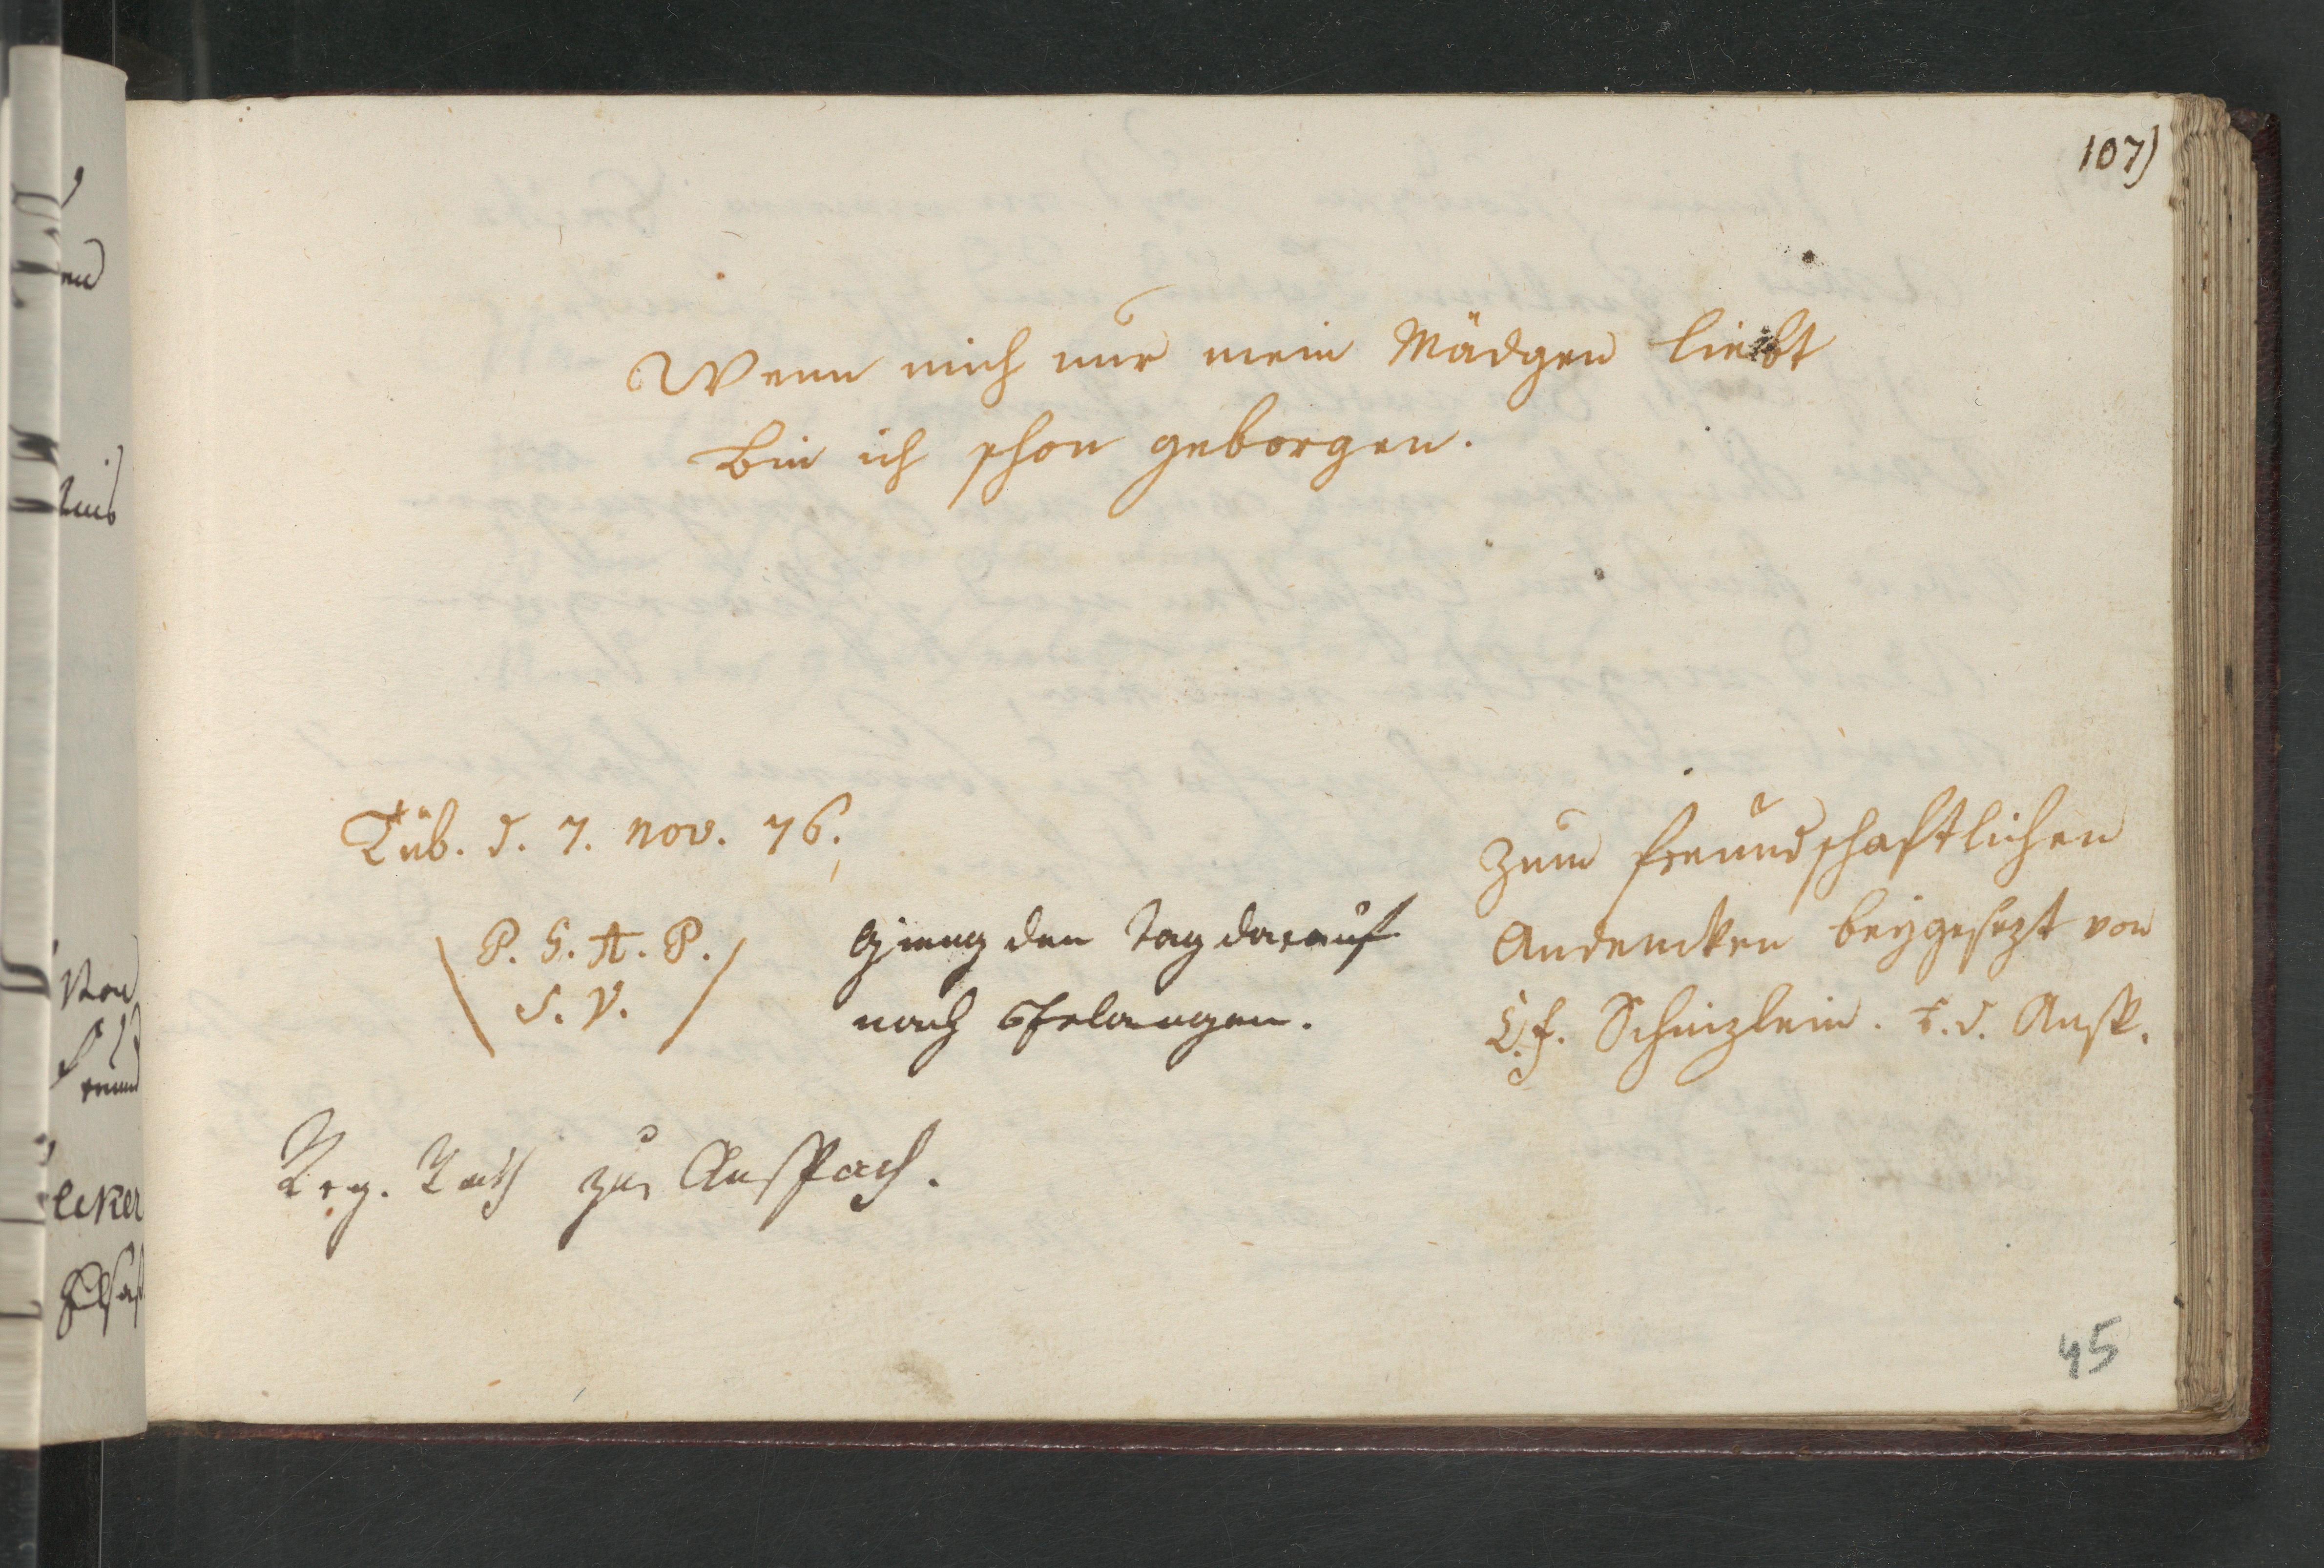 107)
Wenn mich nur mein Mädgen liebt
bin ich schon geborgen.
Tüb. d. 7. nov. 76.
P. S. A. P.
S. V.
gieng den Tag darauf
nach Erlangen.
Zum freundschaftlichen
Andencken beygesezt von
Schnizlein. d. Ansp.
Reg. Rath zu Anspach.
45